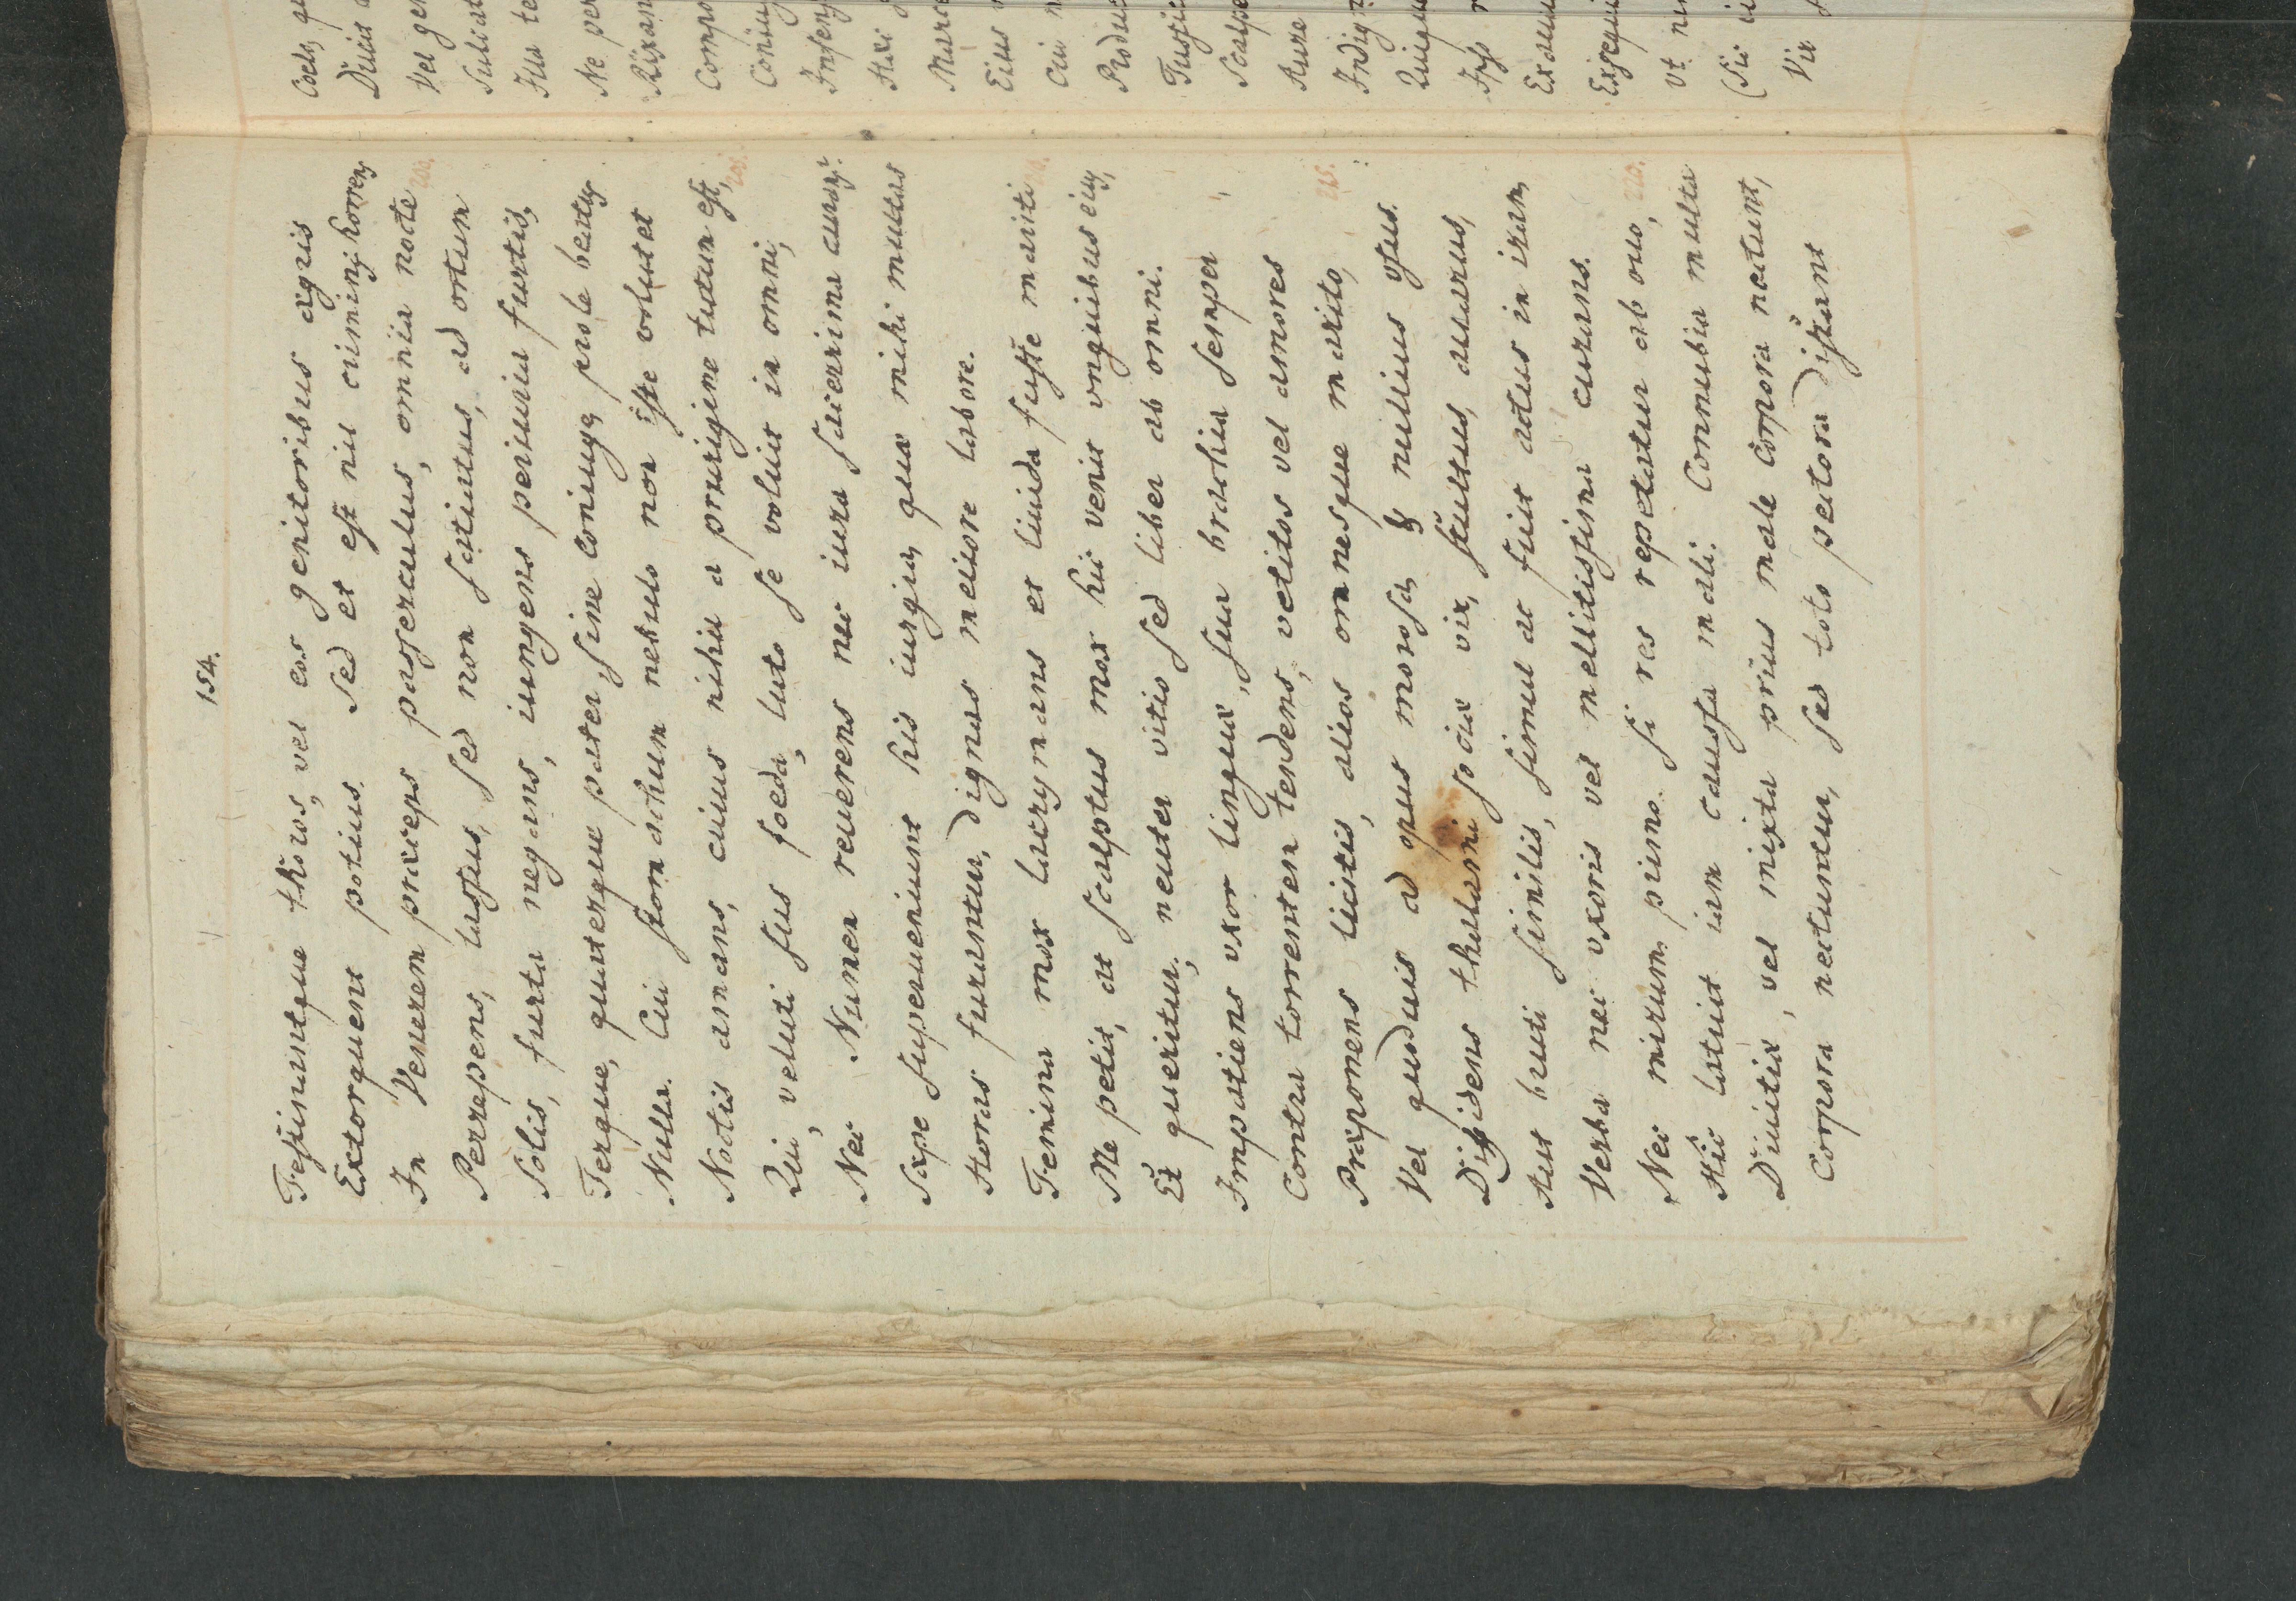 154.
Festinantque thoros, vel eos genitoribus ægris
Extorquent potius. Sed et est nil criminis horrens
In Venerem præceps passerculus, omnia nocte
Perrepens, lustus, sed non satiatus, ad ortum
Solis, furta negans, iungens periuria furtis,
Terque, quaterque pater, sine coniuge, prole beatus
Nulla. Cui stomachum nebulo non iste volutet
Noctis amans, cuius nihil a prurigine tutum est,
Qui, veluti sus foeda, luto se voluit in omni,
Nec Numen reverens nec iura sacerrima curans?
Sæpe superueniunt his iurgia, quæ mihi multas
Horas furantur, dignas meliore labore.
Femina mox lacrymans et liuida fuste mariti
Me petit, at scalptus mox hic venit vnguibus eius,
Et queritur; neuter vitio sed liber ab omni.
Impatiens vxor linguæ, sua brachia semper
Contra torrentem tendens, vetitos vel amores
Præponens licitis, alios omnesque marito,
Vel quoduis ad opus morosa, & nullius vsus.
Dissidens thalami sociæ vir, stultus, auarus,
Aut bruti similis, simul ac fuit actus in iram,
Verba nec vxoris vel mellitissima curans.
Nec mirum primo. si res repetatur ab ouo,
Hic latuit iam caussa mali. Connubia multa
Diuitiæ, vel mixta prius male corpora nectunt,
Corpora nectuntur, sed toto pectora distant
200.
205.
210.
215.
220.